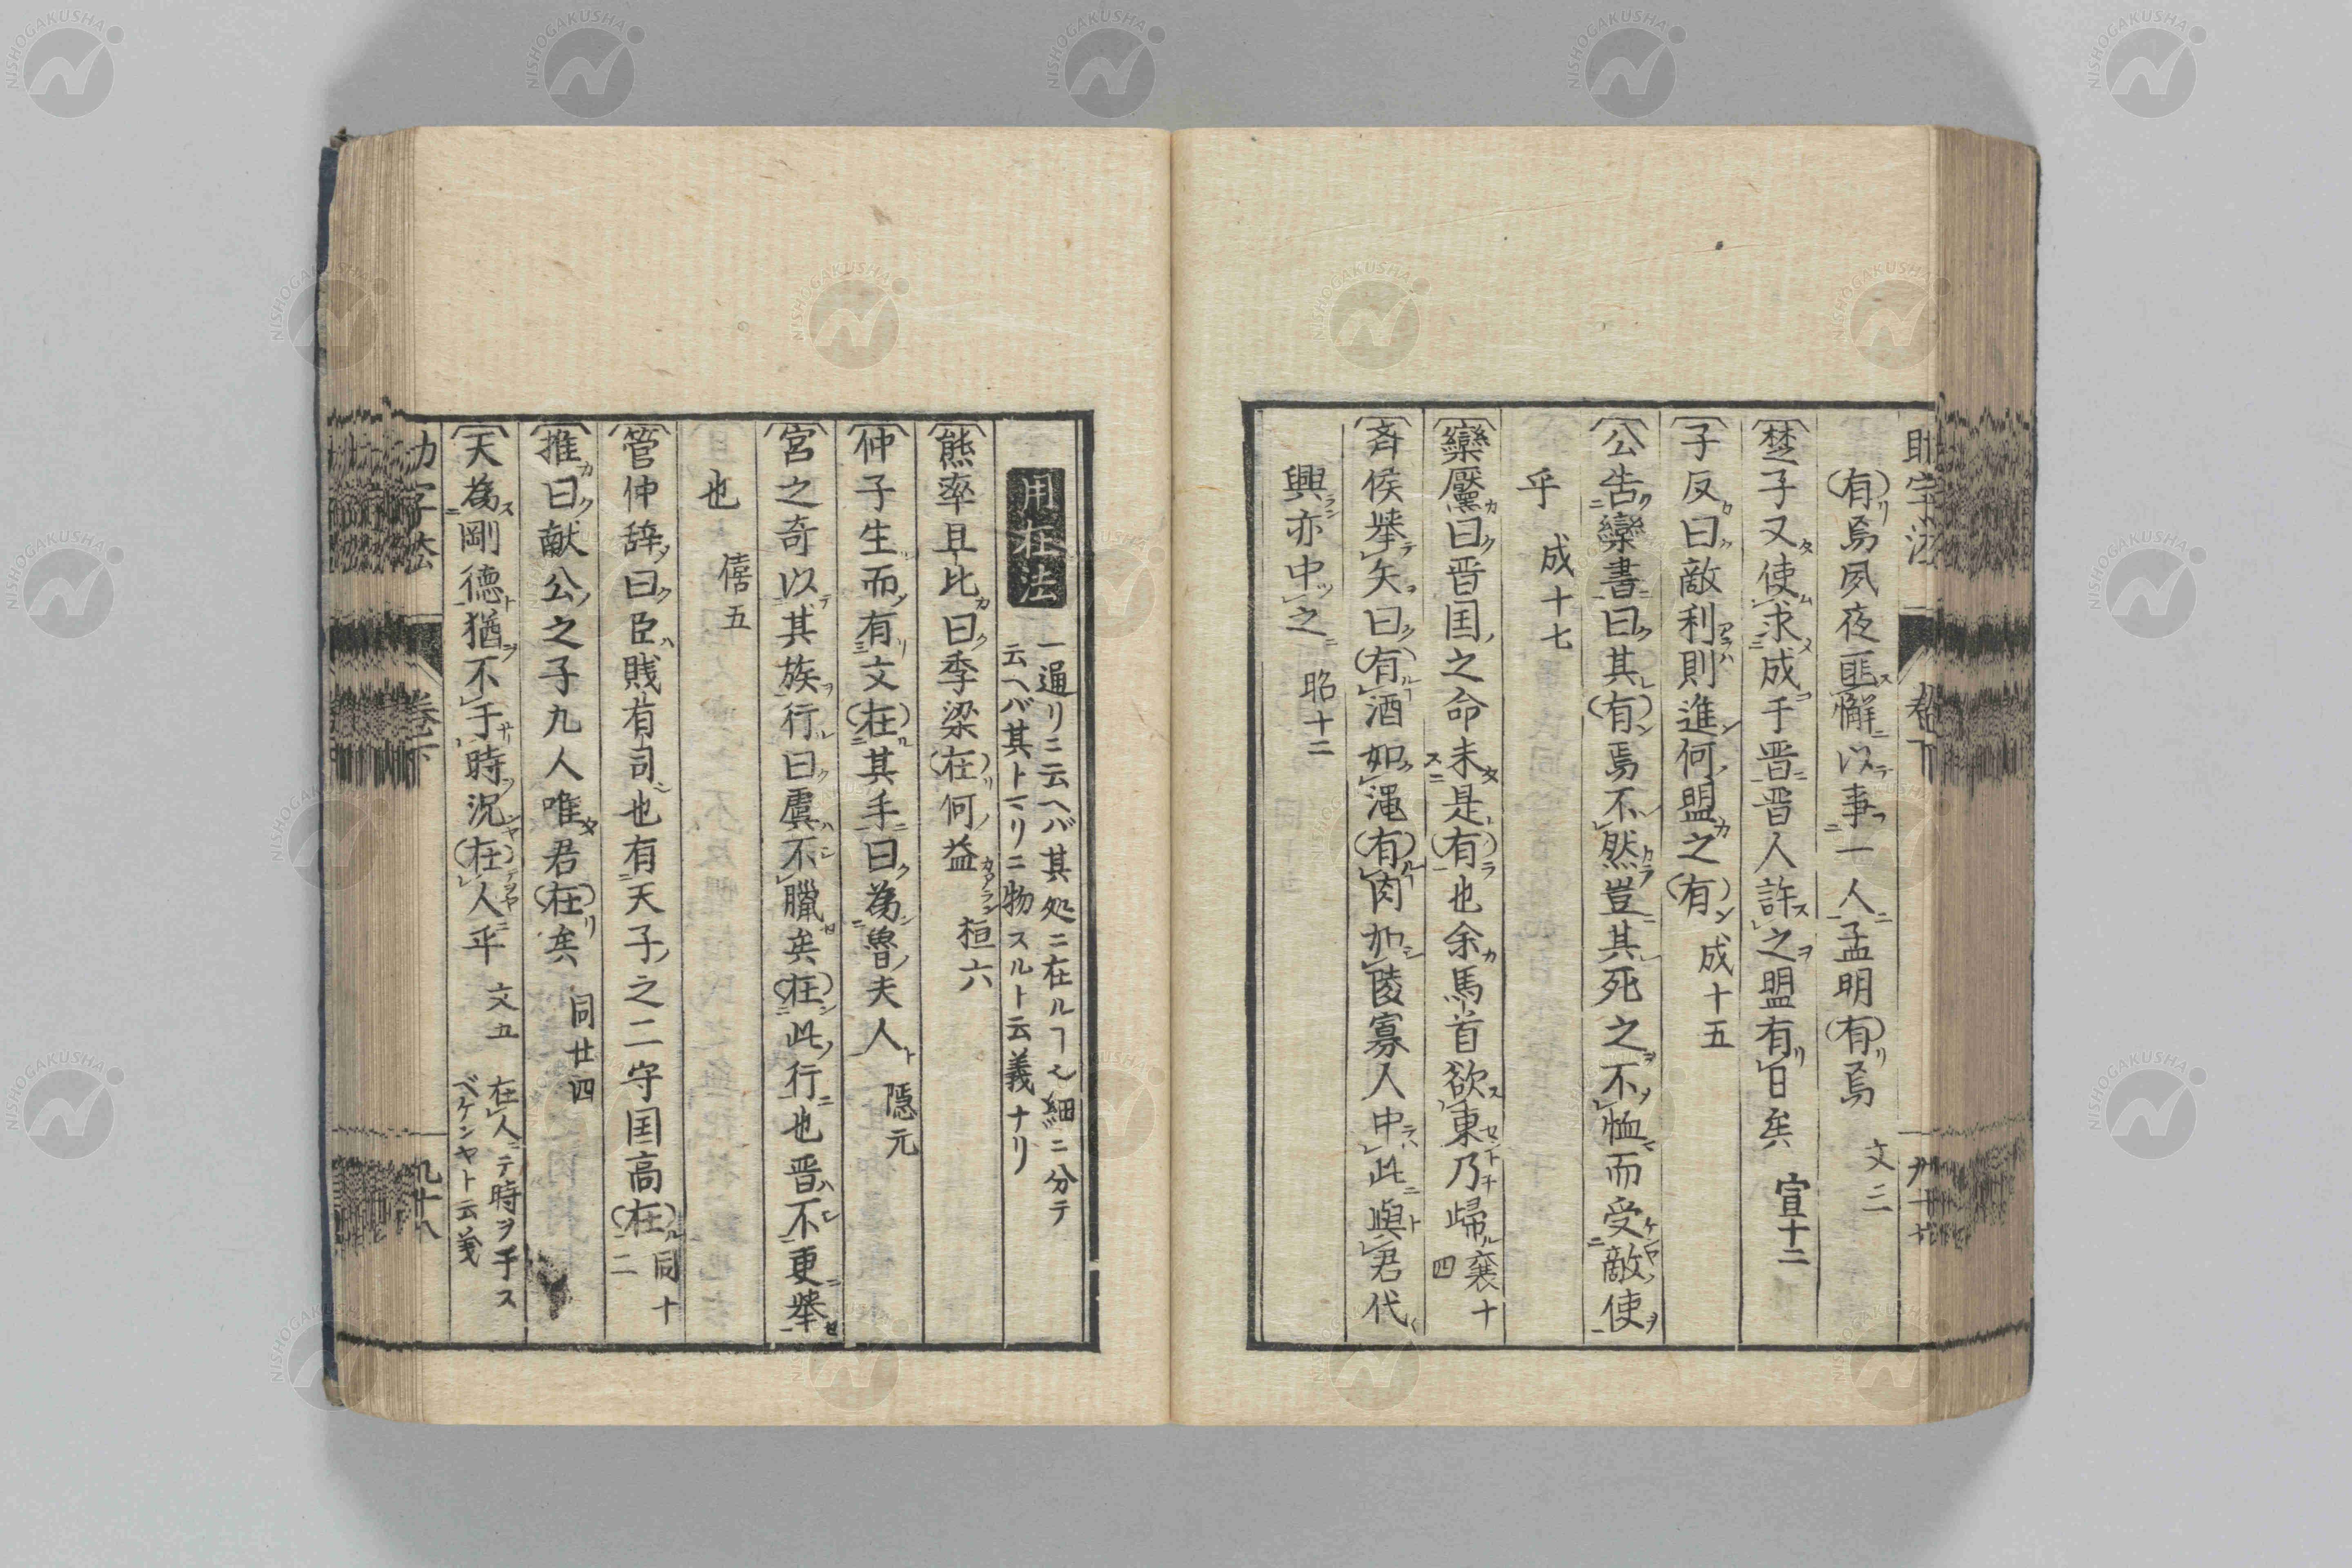 有焉夙夜匪懈以事一人孟明有焉 文三
楚子又使求成于晋晋人許之盟有日矣 宣十二
子反曰敵利則進何盟之有 成十五
公告欒書曰其有焉不然豈其死之不恤而受敵使
乎 成十七
欒黶曰晋国之命未是有也余馬首欲東乃帰 襄十四
斉侯挙矢曰有酒如澠有肉如陵寡人中此與君代
興亦中之 昭十二
用在法 一通リニ云ヘバ其処ニ在ルヿ也細ニ分テ
云ヘバ其トマリニ物スルト云義ナリ
熊率且比曰季梁在何益 桓六
仲子生而有文在其手曰為魯夫人 隠元
宮之奇以其族行曰虞不臘矣在此行也晋不更挙
也 僖五
管仲辞曰臣賎有司也有天子之二守国高在 同十二
推曰献公之子九人唯君在矣 同廿四
天為剛徳猶不干時況在人乎 文五 在人ニテ時ヲ干ス
ベケンヤト云義
巻下
NISHOGAKUSHA